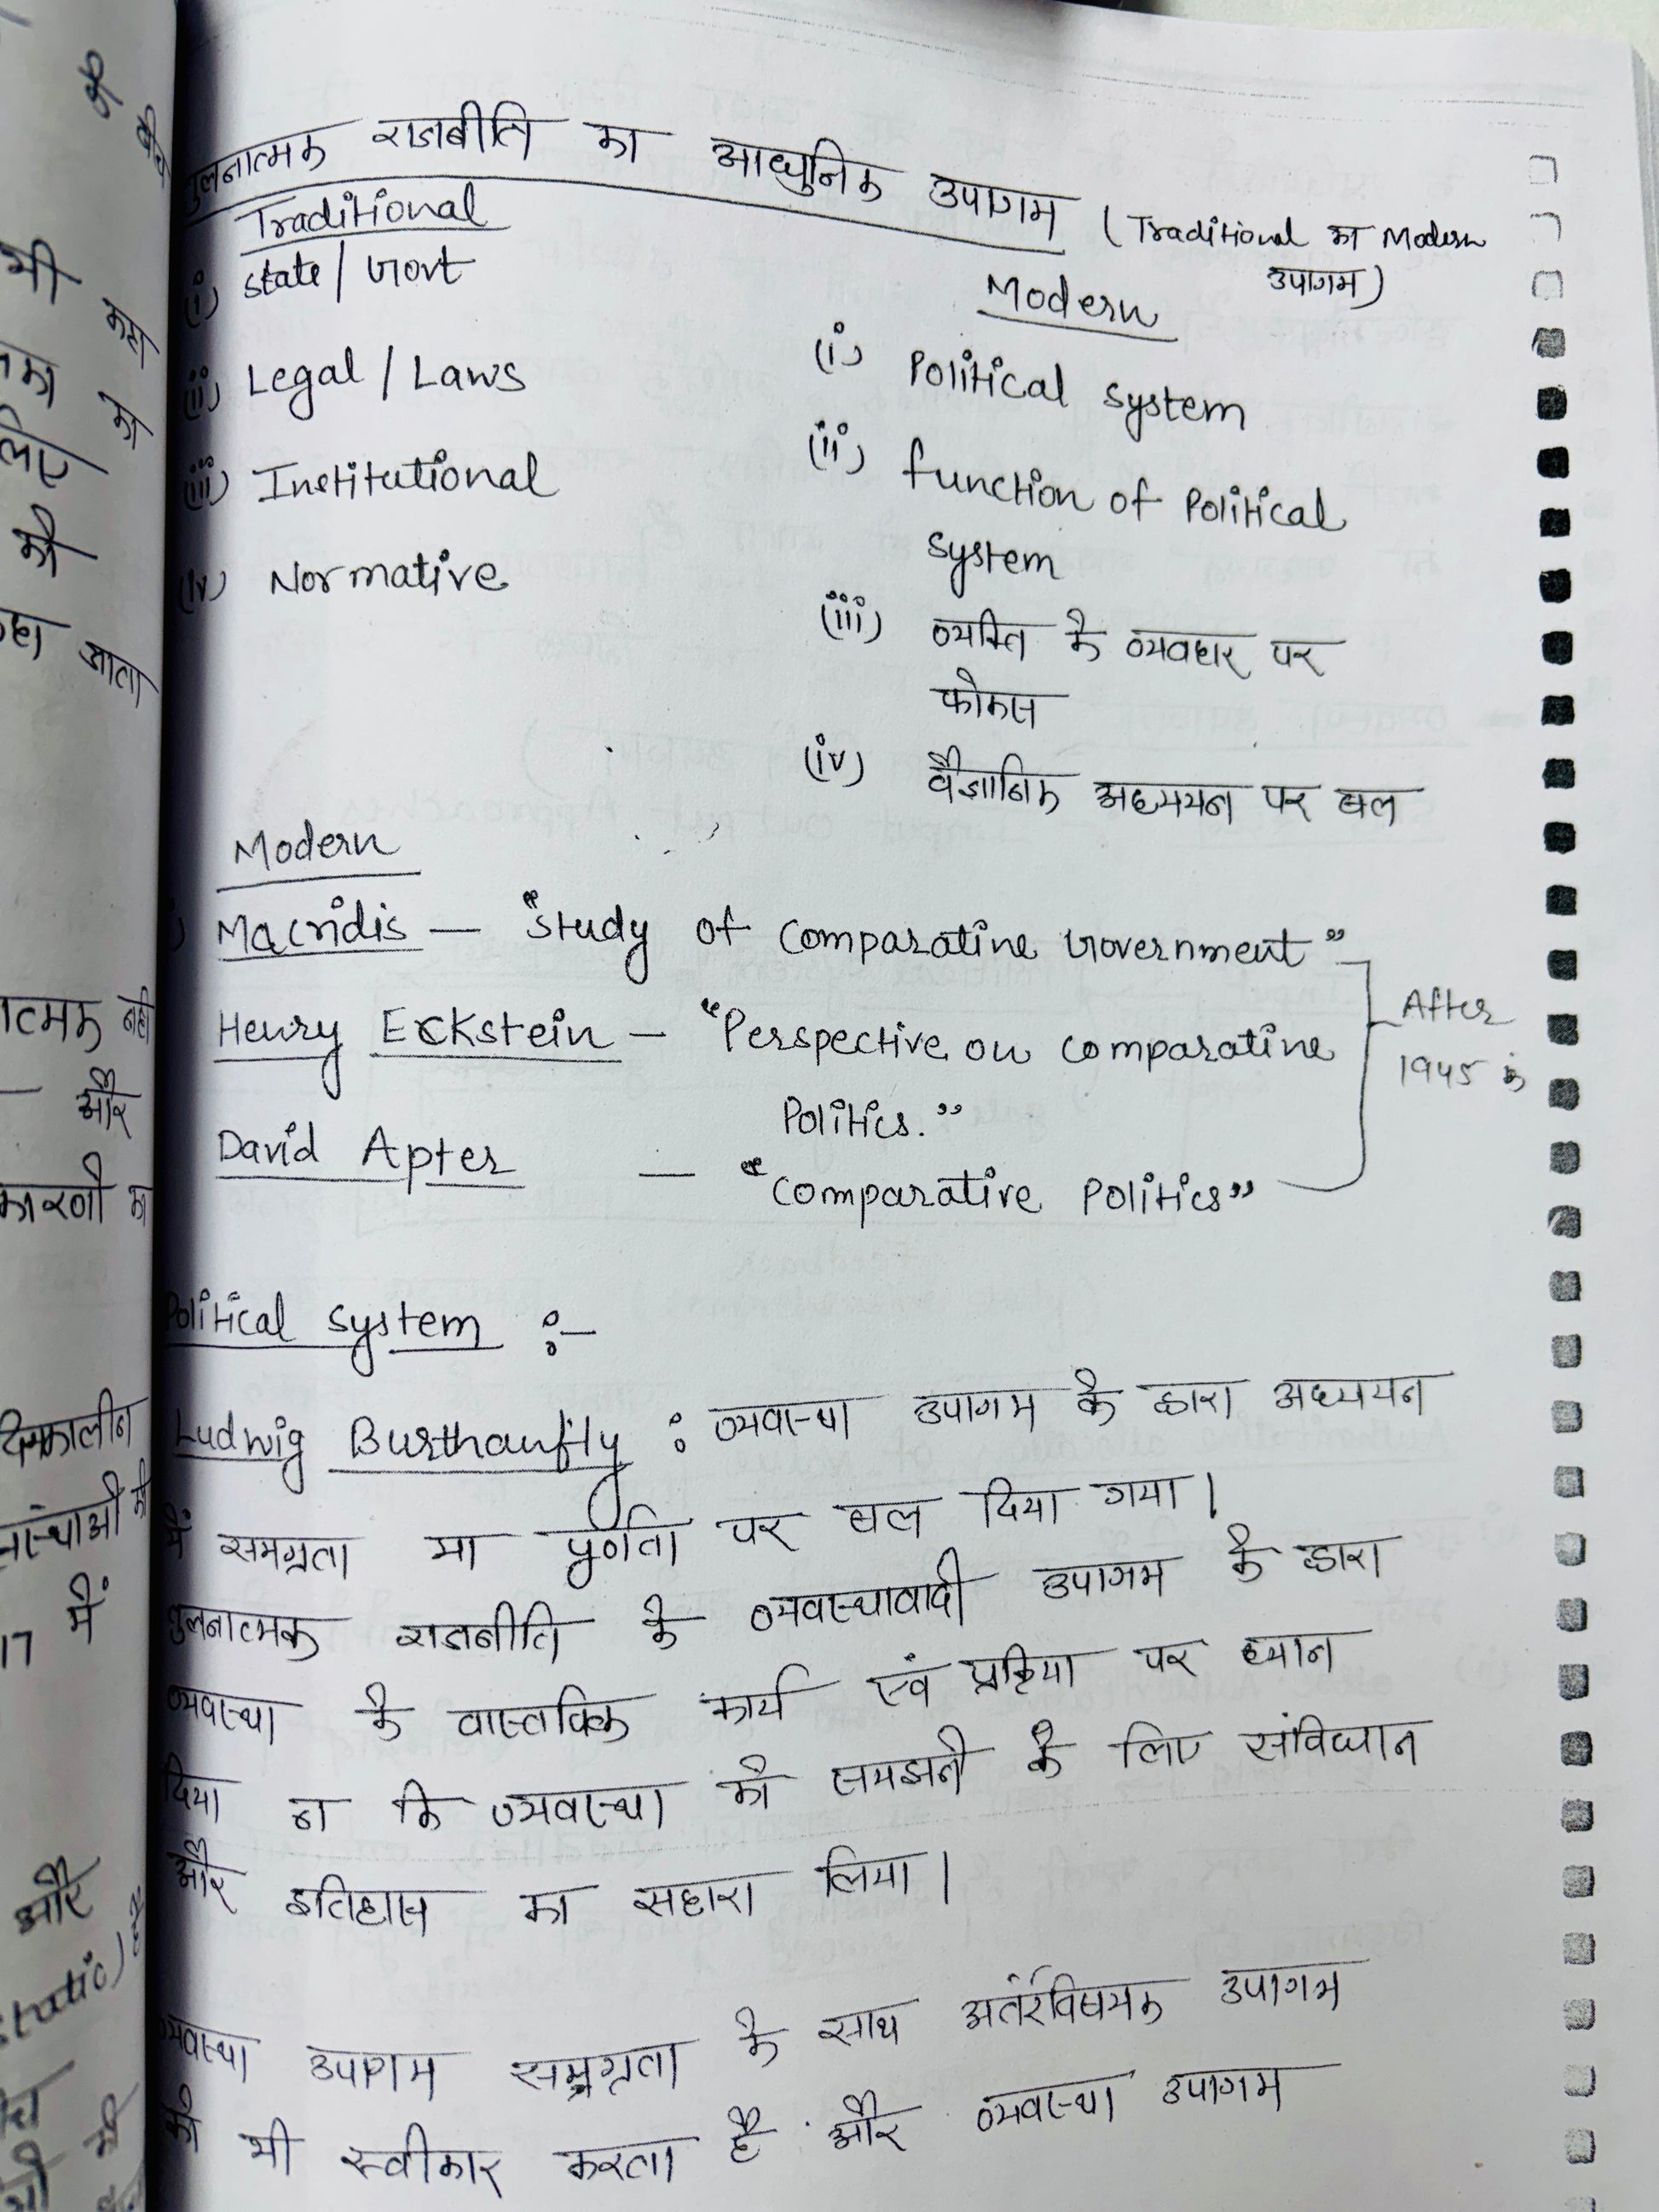 तुलनात्मक राजनीति का आधुनिक उपागम (Traditional का Modern
उपागम)
Traditional
(i) state / Govt
(ii) Legal / Laws
(iii) Institutional
(iv) Normative
Modern
(i) Political system
(ii) function of Political
system
(iii) व्यक्ति के व्यवहार पर
फोकस
(iv) वैज्ञानिक अध्ययन पर बल
Modern
Macridis — "Study of Comparative Government"
Henry Eckstein — "Perspective on Comparative
Politics."
David Apter — "Comparative Politics"
After
1945 के
Political system :-
Ludwig Burthanffly : व्यवस्था उपागम के द्वारा अध्ययन
में समग्रता या पूर्णता पर बल दिया गया।
तुलनात्मक राजनीति के व्यवस्थावादी उपागम के द्वारा
व्यवस्था के वास्तविक कार्य एवं प्रक्रिया पर ध्यान
दिया न कि व्यवस्था को समझने के लिए संविधान
और इतिहास का सहारा लिया।
व्यवस्था उपागम समग्रता के साथ अर्तंरविषयक उपागम
को भी स्वीकार करता है और व्यवस्था उपागम
के
बीच
भी कहा
का
लिए
को
कहा जाता
नहीं
और
कारणों का
17 में
और
static)